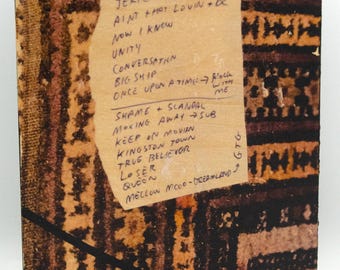 AINT THAT LOVIN
NOW I KNOW
UNITY
CONVERSATION
BIG SHIP
ONCE UPON A TIME → ROCK WITH ME
SHAME + SCANDAL
MOVING AWAY → SUB
KEEP ON MOVIN
KINGSTON TOWN
TRUE BELIEVER
LOSER
QUEEN
MELLOW MOOD - DREAMLAND
GTG